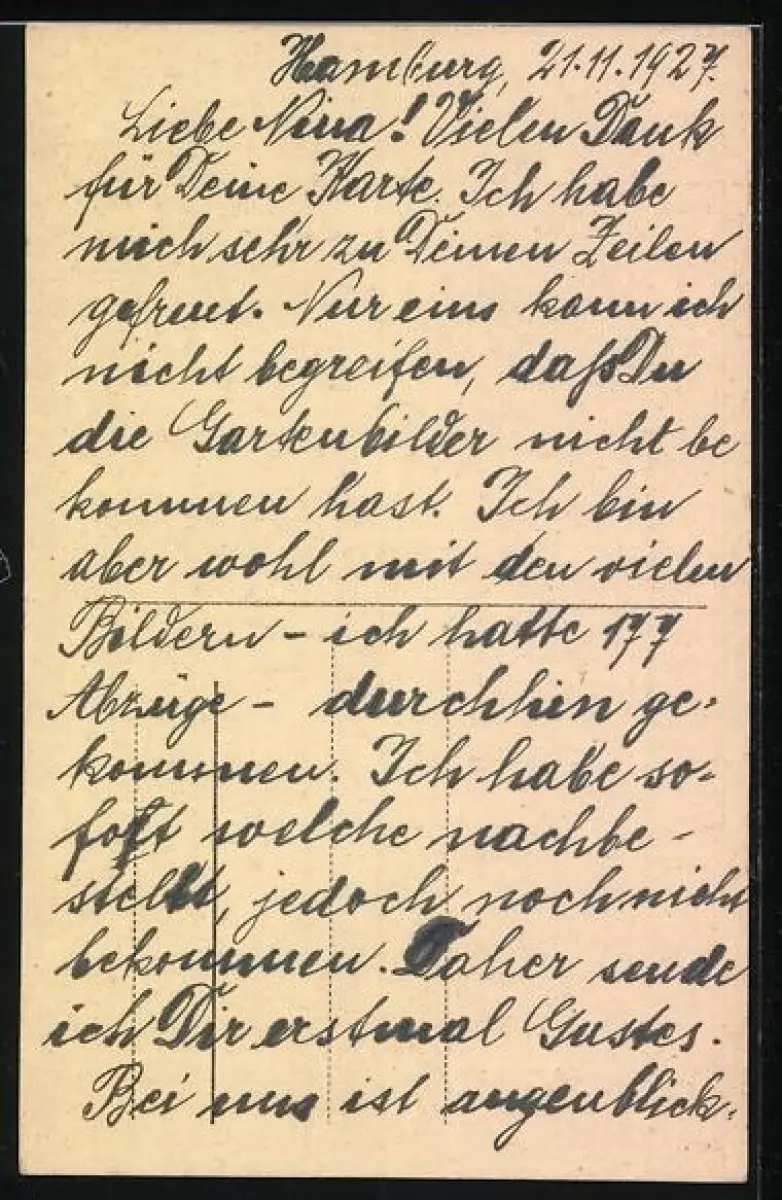 Hamburg, 21.11.1927.
Liebe Nina! Vielen Dank
für Deine Karte. Ich habe
mich sehr zu Deinen Zeilen
gefreut. Nur eins kann ich
nicht begreifen, daß Du
die Gartenbilder nicht be
kommen hast. Ich bin
aber wohl mit den vielen
Bildern - ich hatte 177
Abzüge - durchhin ge-
kommen. Ich habe so-
fort welche nachbe-
stellt, jedoch noch nicht
bekommen. Daher sende
ich Dir erstmal Gustes.
Bei uns ist augenblick-